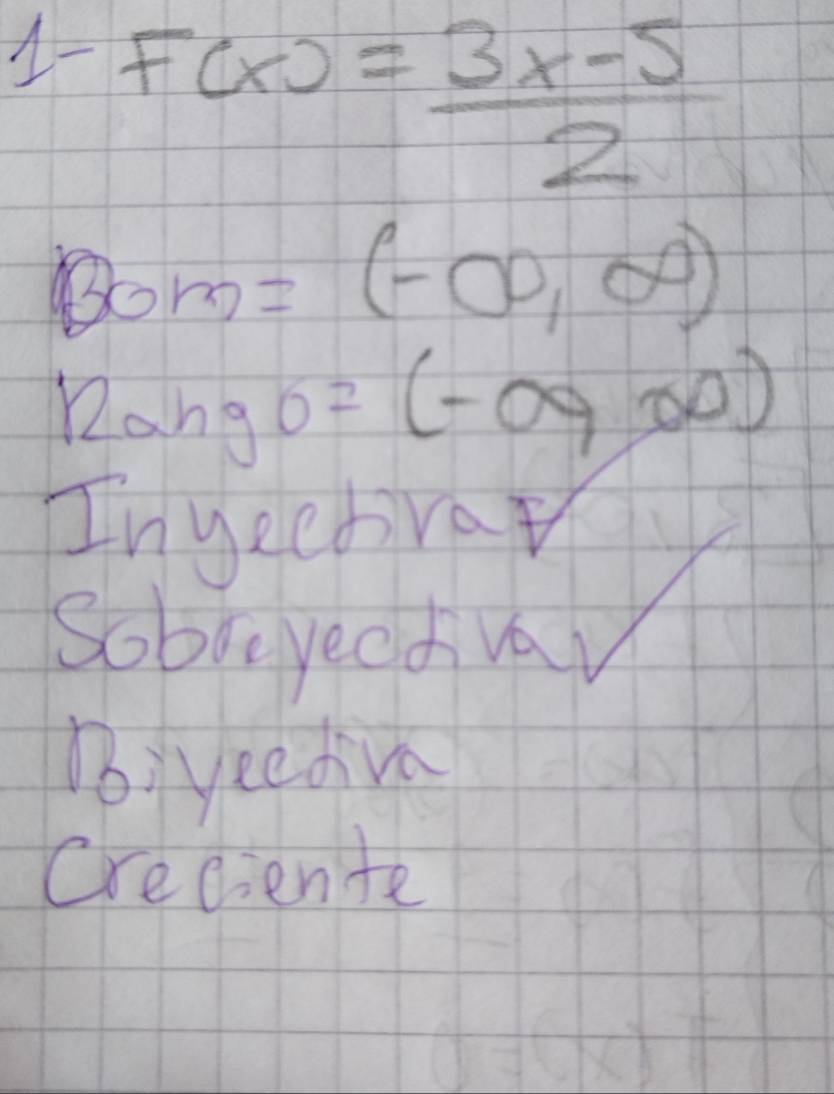 1- F(x) = 3x-5
2
Dom= (-∞, ∞)
Rango= (-∞, ∞)
Inyectiva ✓
Sobreyectiva ✓
Biyectiva
Creciente